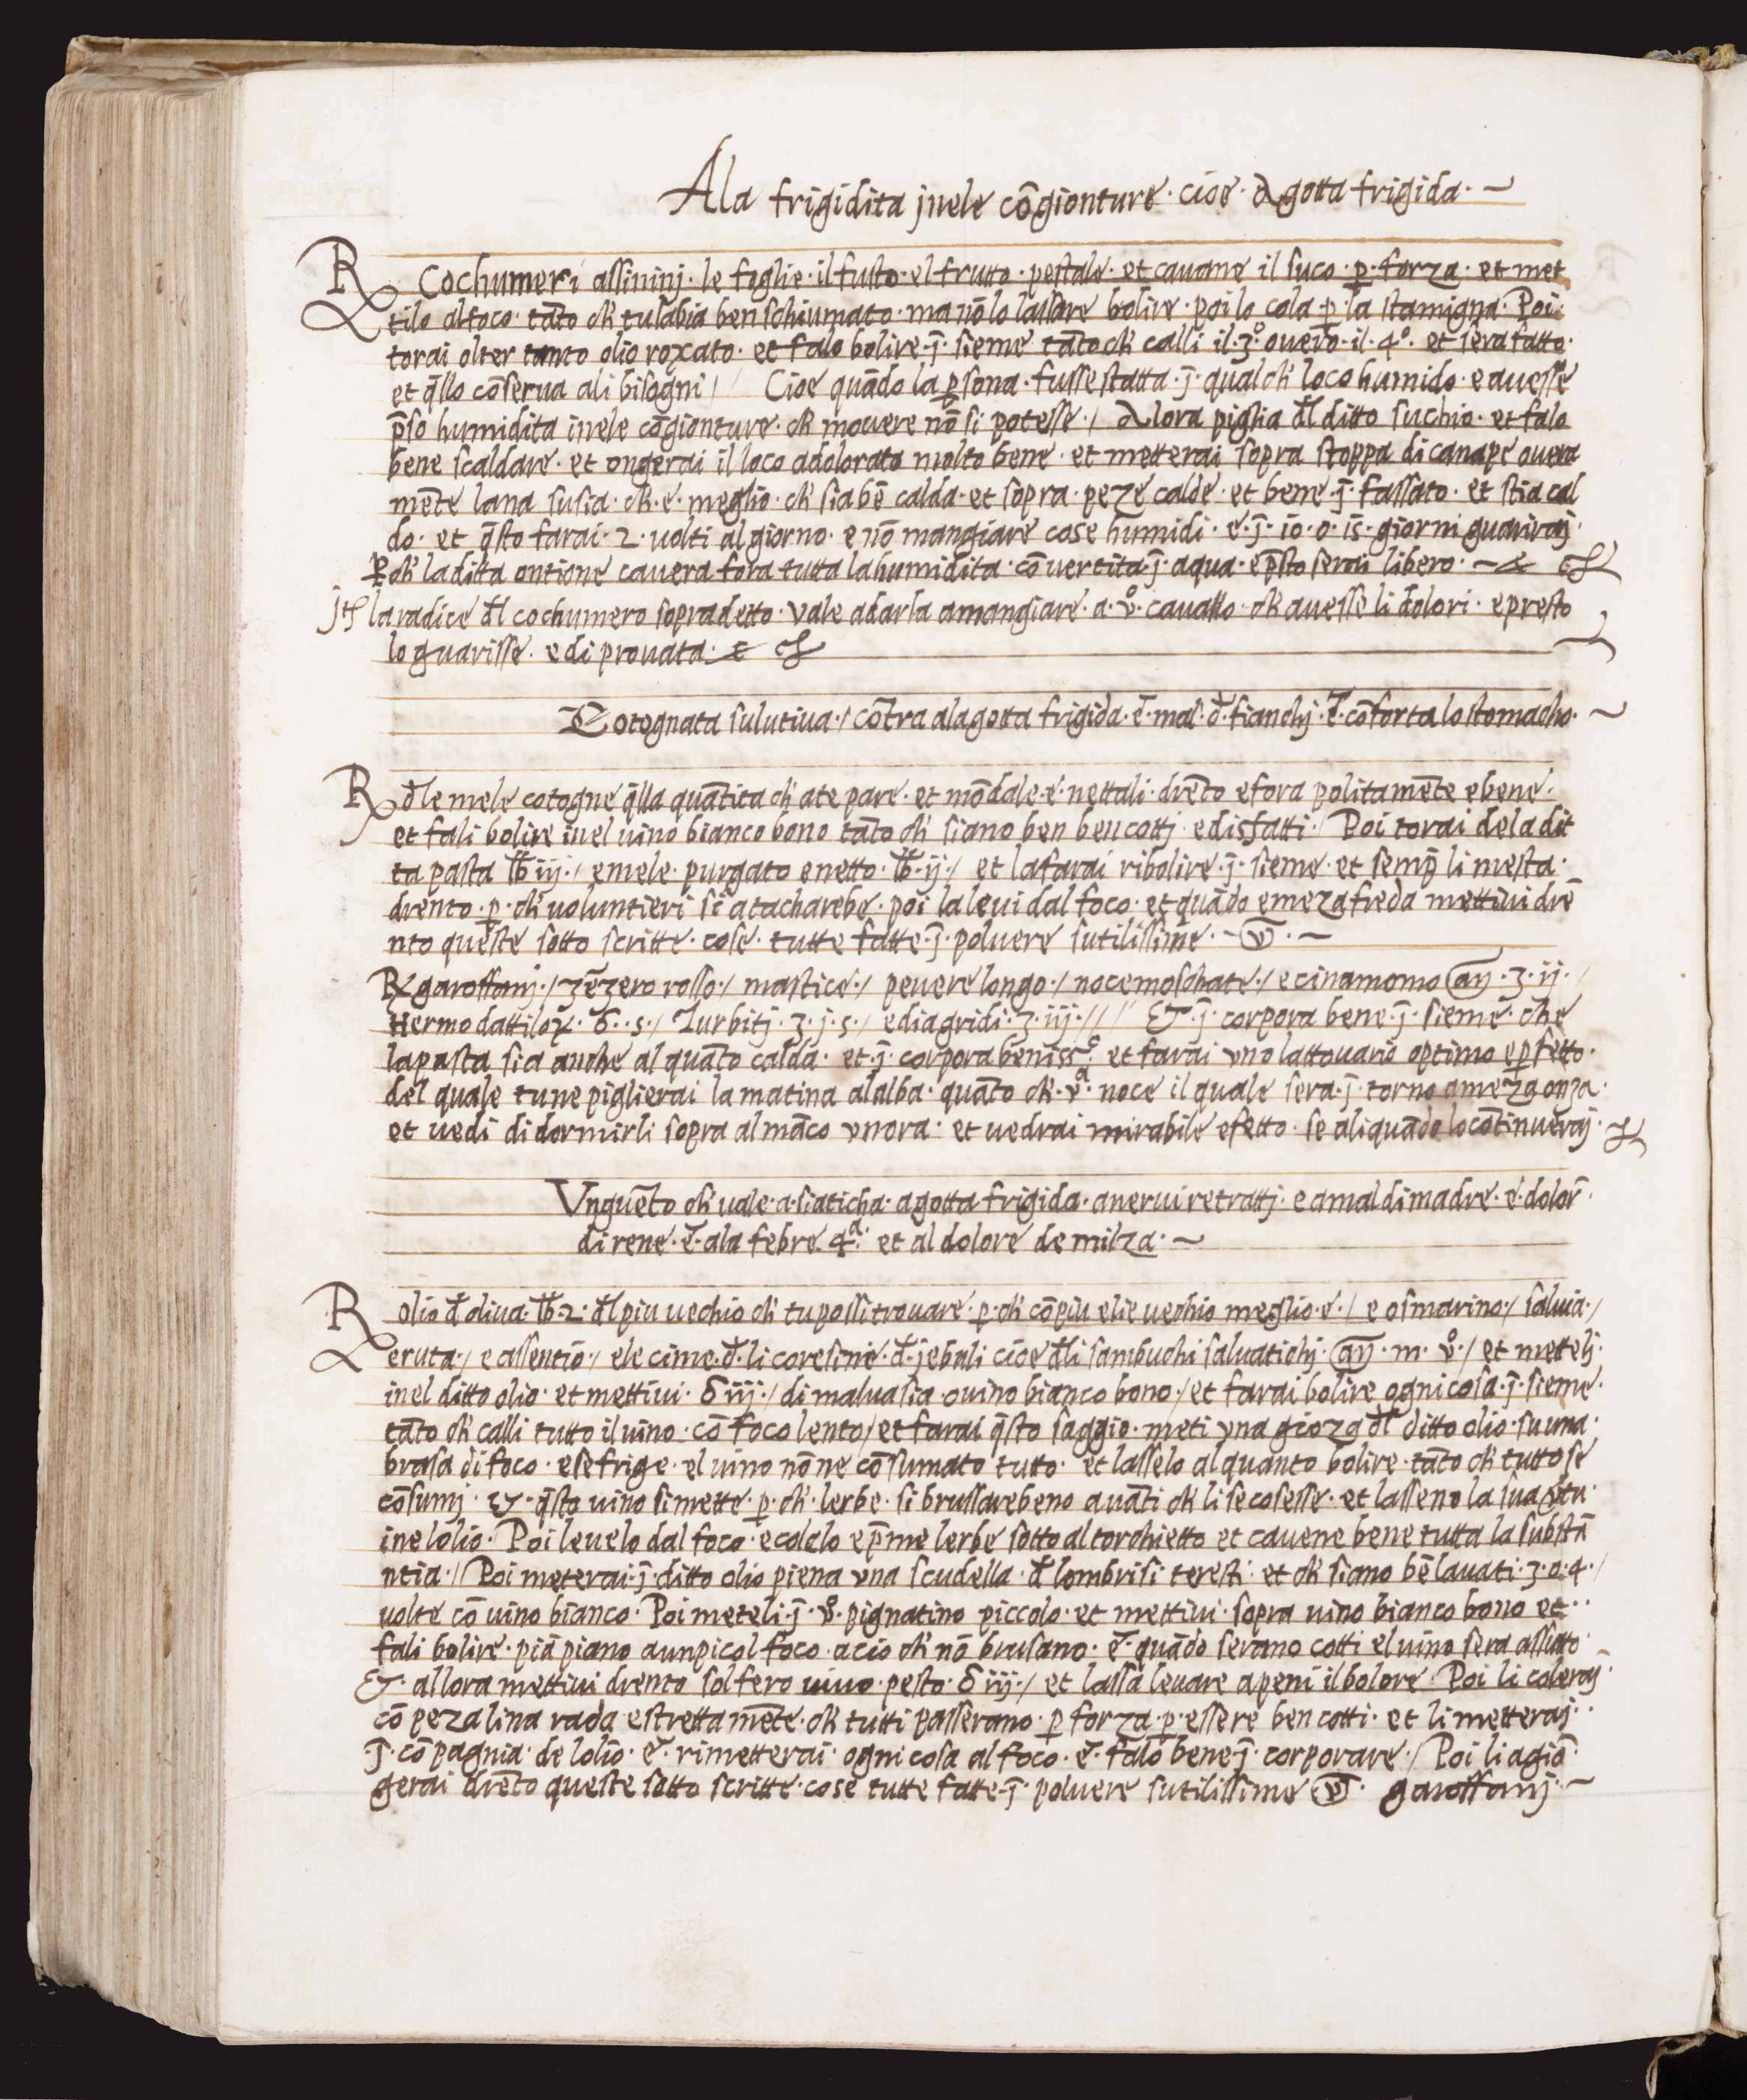 Ala frigidita jnele cōgionture · cioe · d gotta frigida ·
℞ Cochumeri assininj · le foglie · il fusto · el frutto · pestale · et cavane il suco · ꝑ · forza · et met
tilo al foco · tāto ch' tu labia ben schiumato · ma nō lo lassare bolire · poi lo cola ꝑ la stamigna · Poi
torai olter tanto olio roxato · et falo bolire · j̄ · sieme tāto ch' calli il · 3° · overo · il · 4° · et sera fatto ·
et q̄llo cōserva ali bisogni / Cioe quādo la ꝑsona · fusse statta · j̄ · qualch' loco humido · e avesse
p̄so humidita inele cōgionture · ch movere nō si potesse · / Alora piglia dl ditto suchio · et falo
bene scaldare · et ongerai il loco adolorato molto bene · et metterai sopra stoppa di canape overa
mēte lana susia · ch · e · meglio · ch' sia bē calda · et sopra · peze calde · et bene · j̄ · fassato · et stia cal
do · et q̄sto farai · 2 · volti al giorno · e nō mangiare cose humidi · e · j̄ · 10 · o · 15 · giorni guarirai ·
ꝑ ch' la ditta ontione cavera fora tutta la humidita · cōvertita · j̄ · aqua · e p̄sto serai libero ·
Jt la radice dl cochumero sopradetto · vale a darla a mangiare · a · v° · cavallo · ch' avesse li dolori · e presto
lo guarisse · e di provata ·
Cotognata sulutiva · / cōtra ala gotta frigida · e · mal · d · fianchj · e · cōforta lo stomacho ·
℞ dle mele cotogne q̄lla quātita ch' a te pare · et mōdale · e · nettali · drēto e fora politamēte e bene ·
et fali bolire inel vino bianco bono tāto ch' siano ben ben cottj · e disfatti · / Poi torai de la dit
ta pasta ℔ iij · / e mele · purgato e netto · ℔ · ij · / et la farai ribolire · j̄ · sieme · et semp̄ li mesta ·
drento · ꝑ · ch' voluntieri si atacharebe · poi la levi dal foco · et quādo e meza freda mettivi drē
nto queste sotto scritte · cose · tutte fatte · j̄ · polvere sutilissime ·
℞ garoffani · / zēzero rosso · / mastice · / pevere longo · / noce moschate · / e cinamomo an̄ · ʒ · ij · /
Hermodattiloꝝ · δ · s · / Turbitj · ʒ · j · s · / e diagridi · ʒ · iij · // Et · j̄ · corpora bene · j̄ · sieme · che
la pasta sia anche al quāto calda · et · j̄ · corpora beniss° · et farai vno lattovario optimo e ꝑfetto ·
del quale tu ne piglierai la matina alalba · quāto ch · vᵃ · noce il quale sera · j̄ · torno a meza onza ·
et vedi di dormirli sopra al māco vnora · et vedrai mirabile efetto · se ali quādo lo cōtinuerai ·
Vnguēto ch' vale · a · siaticha · a gotta frigida · a nervi retrattj · e a mal di madre · e · dolor
di rene · e · ala febre · 4ᵃ · et al dolore de milza ·
℞ olio d oliva · ℔ · 2 · dl piu vechio ch' tu possi trovare · ꝑ · ch' cō piu elie vechio meglio · e · / e osmarino · / salvia · /
e ruta · / e assentio · / e le cime · d · li coresini · d · jebuli cioe dli sambuchi salvatichj · an̄ · m · v° · / et metteli ·
inel ditto olio · et mettivi · δ iij · / di malvasia · o vino bianco bono · / et farai bolire ogni cosa · j̄ · sieme ·
tāto ch' calli tutto il vino · cō foco lento / et farai q̄sto saggio · meti vna gioza dl ditto olio · su una ·
brasa di foco · e se frige · el vino nō ne cōsumato tutto · et lasselo alquanto bolire · tāto ch' tutto se
cōsumj · Et · q̄sto vino si mette · ꝑ · ch' · lerbe · si brussarebeno avāti ch' li se cosesse · et lasseno la sua v̄tu ·
inelolio · Poi levelo dal foco · e colelo e p̄me lerbe sotto al torchietto et cavene bene tutta la substā
ntia · // Poi meterai · j̄ · ditto olio piena vna scudella · d lombrisi teresti · et ch' siano bē lavati · 3 · o · 4 · /
volte cō vino bianco · Poi meteli · j̄ · v° · pignatino piccolo · et mettivi · sopra vino bianco bono et ·
fali bolire · piā piano a un picol foco · a cio ch' nō brusano · e · quādo serano cotti el vino sera assutto ·
Et · allora mettivi drento solfero vivo · pesto · δ iij · / et lassa levare apeni il bolore · Poi li colerai ·
cō peza lina rada e strettamēte · ch tutti passerano · ꝑ forza · ꝑ · essere ben cotti · et li metterai ·
j̄ · cōpagnia · de lolio · e · rimetterai · ogni cosa al foco · e · falo bene · j̄ · corporare · / Poi li agiō
gerai drēto queste sotto scritte · cose tutte fatte · j̄ · polvere sutilissime · garoffanj ·